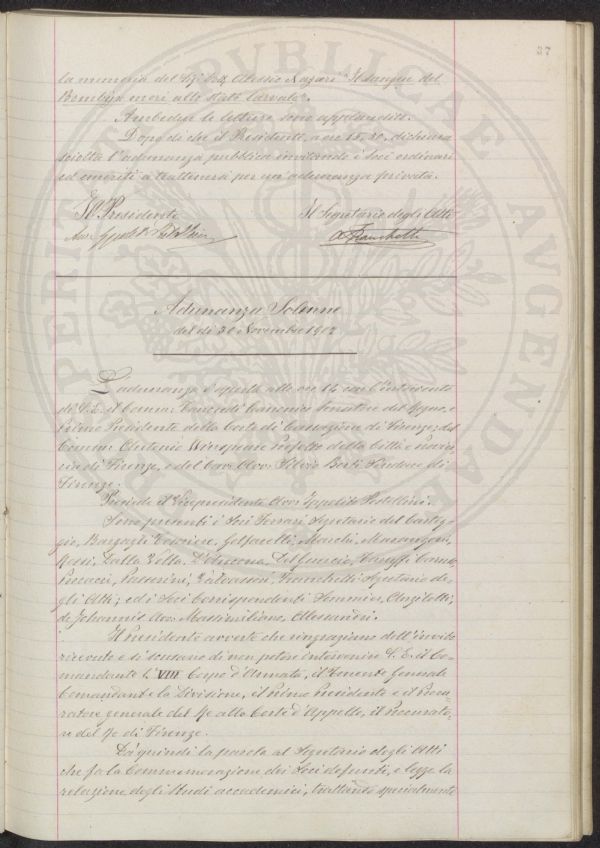 37
la memoria del Sig. Alessio Nazari "Il sangue del
Bombyx mori allo stato larvale".
Ambedue le letture sono applaudite.
Dopo di che il Presidente, a ore 15,30, dichiara
sciolta l'adunanza pubblica invitando i Soci ordinari
ed emeriti a trattenersi per un'adunanza privata.
Il V. Presidente
Il Segretario degli Atti
Avv. Ippolito Pestellini
Franchetti
Adunanza Solenne
del dì 30 Novembre 1902
L'adunanza è aperta alle ore 14 con l'intervento
di S. E. il Comm. Canonico Senatore del Regno, e
Primo Presidente della Corte di Cassazione di Firenze; del
Comm. Antonio Prefetto della Città e Provin
cia di Firenze, e del Cav. Avv. Silvio Berti Sindaco di
Firenze.
Presiede il Vicepresidente Avv. Ippolito Pestellini.
Sono presenti i Soci Ferrari Segretario del Carteg
gio, Bargagli, Golfarelli, Marchi, Marangoni,
Rossi, Dalla Volta, D'Ancona, Del Guercio,
Pucci, Passerini, Valvassori, Franchetti Segretario de
gli Atti; ed i Soci Corrispondenti Sommier, Anzilotti,
de Johannis Avv. Massimiliano, Alessandri.
Il Presidente avverte che ringraziano dell'invito
ricevuto e si scusano di non potere intervenire S. E. il Co
mandante l'VIII Corpo d'Armata, il Tenente Generale
Comandante la Divisione, il Primo Presidente e il Procu
ratore generale del Re alla Corte d'Appello, il Procurato
re del Re di Firenze.
Dà quindi la parola al Segretario degli Atti
che fa la Commemorazione dei Soci defunti, e legge la
relazione degli studi accademici, trattando specialmente